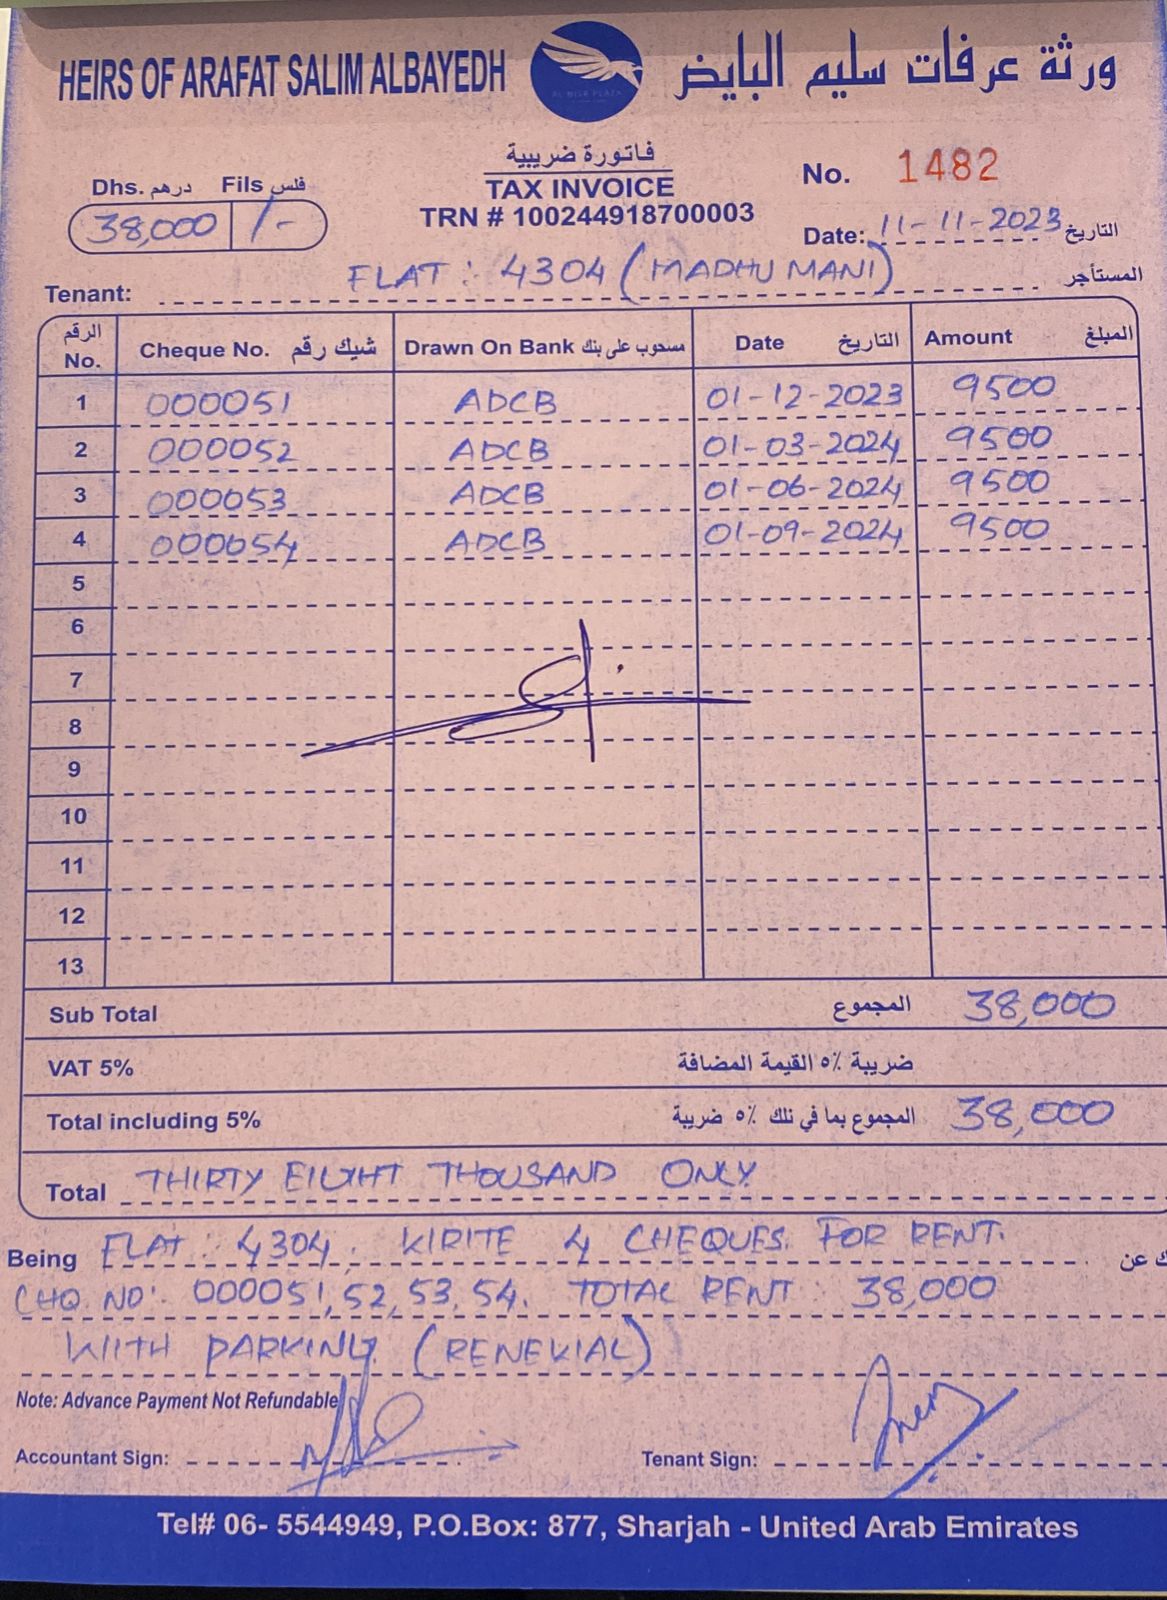 HEIRS OF ARAFAT SALIM ALBAYEDH ورثة عرفات سليم البايض
AL NISR PLAZA
فاتورة ضريبية
TAX INVOICE
TRN # 100244918700003
Dhs. درهم Fils فلس
38,000 /-
No. 1482
Date: 11-11-2023 التاريخ
Tenant: FLAT: 4304 (MADHU MANI) المستأجر
الرقم No. Cheque No. شيك رقم Drawn On Bank مسحوب على بنك Date التاريخ Amount المبلغ
1 000051 ADCB 01-12-2023 9500
2 000052 ADCB 01-03-2024 9500
3 000053 ADCB 01-06-2024 9500
4 000054 ADCB 01-09-2024 9500
5
6
7
8
9
10
11
12
13
Sub Total المجموع 38,000
VAT 5% ضريبة ٥% القيمة المضافة
Total including 5% المجموع بما في ذلك ٥% ضريبة 38,000
Total THIRTY EIGHT THOUSAND ONLY
Being FLAT: 4304. WRITE 4 CHEQUES. FOR RENT. ك عن
CHQ. NO: 000051, 52, 53, 54. TOTAL RENT: 38,000
WITH PARKING. (RENEWAL)
Note: Advance Payment Not Refundable
Accountant Sign: Tenant Sign:
Tel# 06- 5544949, P.O.Box: 877, Sharjah - United Arab Emirates